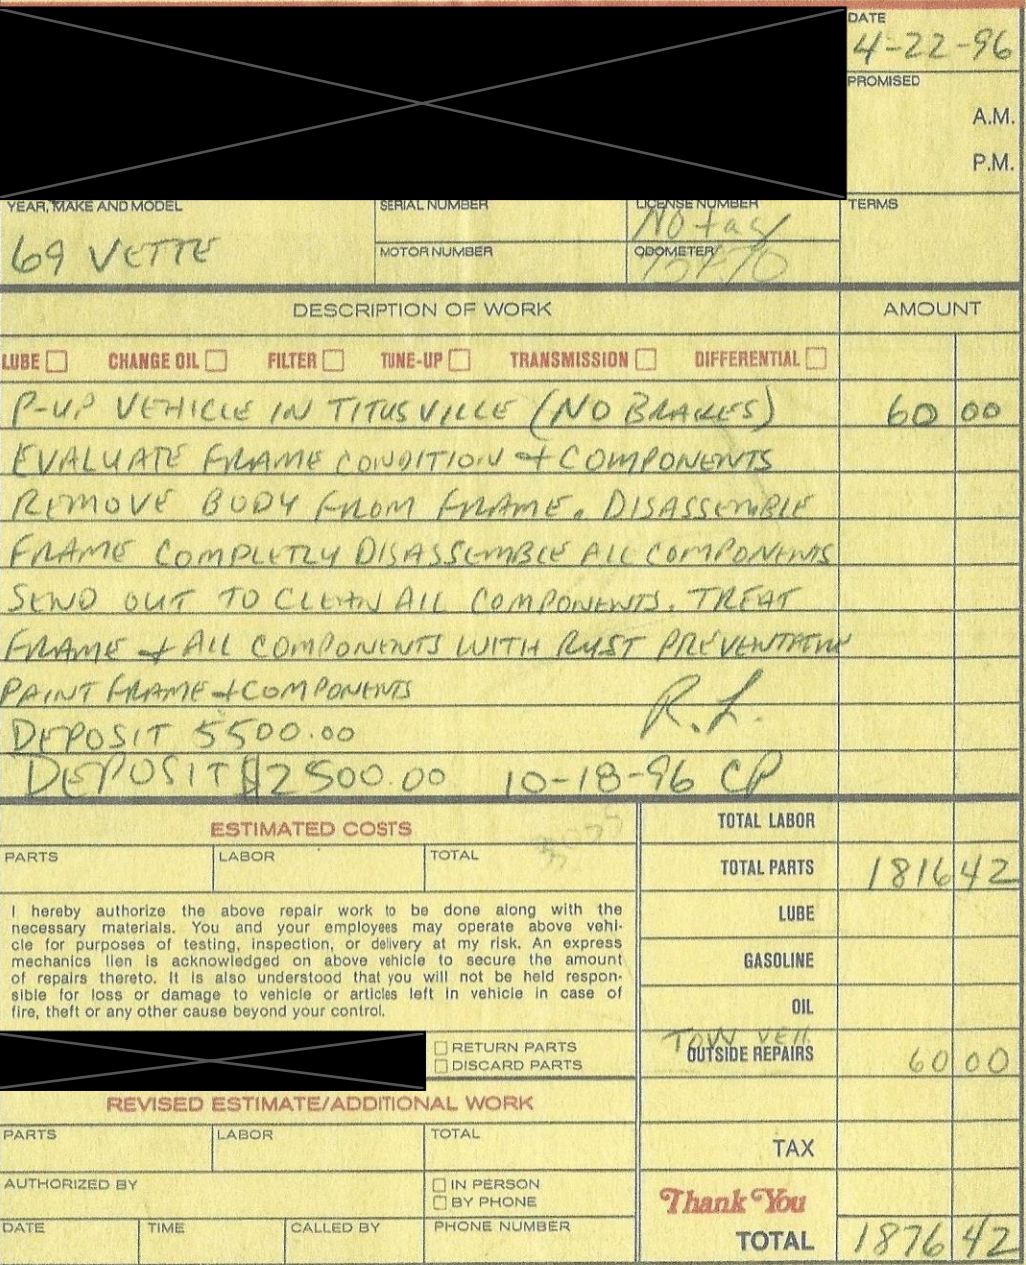 DATE
4-22-96
PROMISED
A.M.
P.M.
YEAR, MAKE AND MODEL
SERIAL NUMBER
LICENSE NUMBER
TERMS
69 VETTE
No tag
MOTOR NUMBER
ODOMETER
DESCRIPTION OF WORK
AMOUNT
LUBE CHANGE OIL FILTER TUNE-UP TRANSMISSION DIFFERENTIAL
P-UP VEHICLE IN TITUSVILLE (NO BRAKES) 60 00
EVALUATE FRAME CONDITION + COMPONENTS
REMOVE BODY FROM FRAME. DISASSEMBLE
FRAME COMPLETLY DISASSEMBLE ALL COMPONENTS
SEND OUT TO CLEAN ALL COMPONENTS. TREAT
FRAME + ALL COMPONENTS WITH RUST PREVENTATIVE
PAINT FRAME + COMPONENTS R.L.
DEPOSIT 5500.00
DEPOSIT $2500.00 10-18-96 CP
ESTIMATED COSTS
PARTS LABOR TOTAL
I hereby authorize the above repair work to be done along with the
necessary materials. You and your employees may operate above vehi-
cle for purposes of testing, inspection, or delivery at my risk. An express
mechanics lien is acknowledged on above vehicle to secure the amount
of repairs thereto. It is also understood that you will not be held respon-
sible for loss or damage to vehicle or articles left in vehicle in case of
fire, theft or any other cause beyond your control.
RETURN PARTS
DISCARD PARTS
REVISED ESTIMATE/ADDITIONAL WORK
PARTS LABOR TOTAL
AUTHORIZED BY
IN PERSON
BY PHONE
DATE TIME CALLED BY PHONE NUMBER
TOTAL LABOR
TOTAL PARTS 1816 42
LUBE
GASOLINE
OIL
TOW VEH.
OUTSIDE REPAIRS 60 00
TAX
Thank You
TOTAL 1876 42